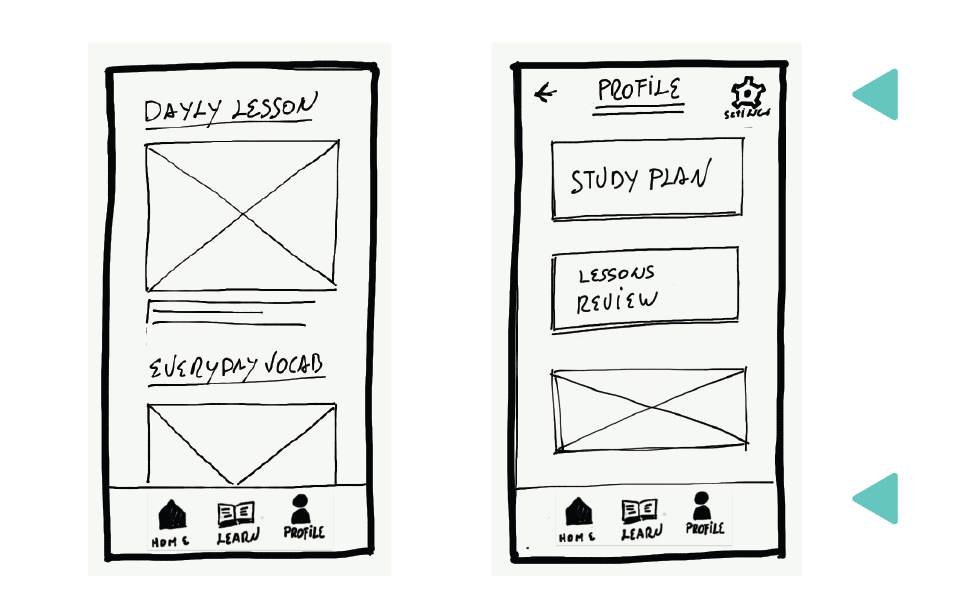 DAYLY LESSON
EVERYDAY VOCAB
HOME LEARN PROFILE
PROFILE
SETINGS
STUDY PLAN
LESSONS
REVIEW
HOME LEARN PROFILE